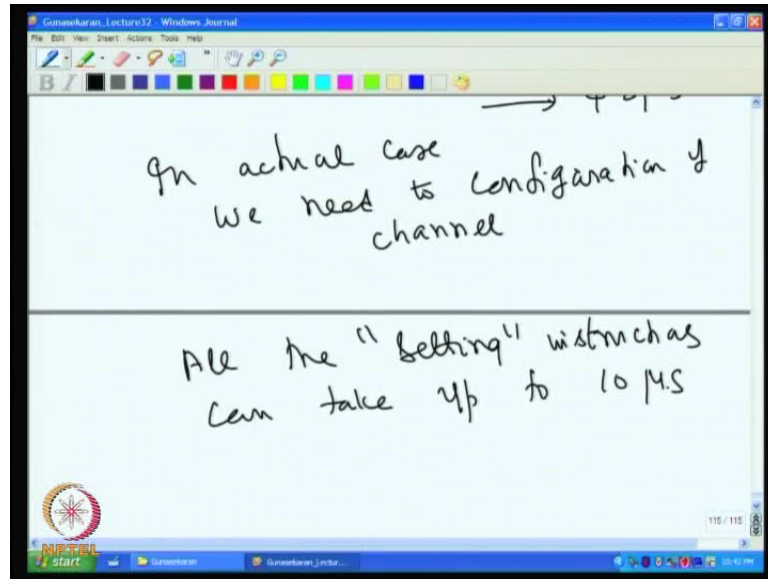 Gunasekaran_Lecture32 - Windows Journal
File Edit View Insert Actions Tools Help
B I
In actual case
we need to configuration of
channel
All the "Setting" instructions
can take up to 10 μs
115 / 115
NPTEL
start Gunasekaran Gunasekaran_Lectur... 10:42 PM